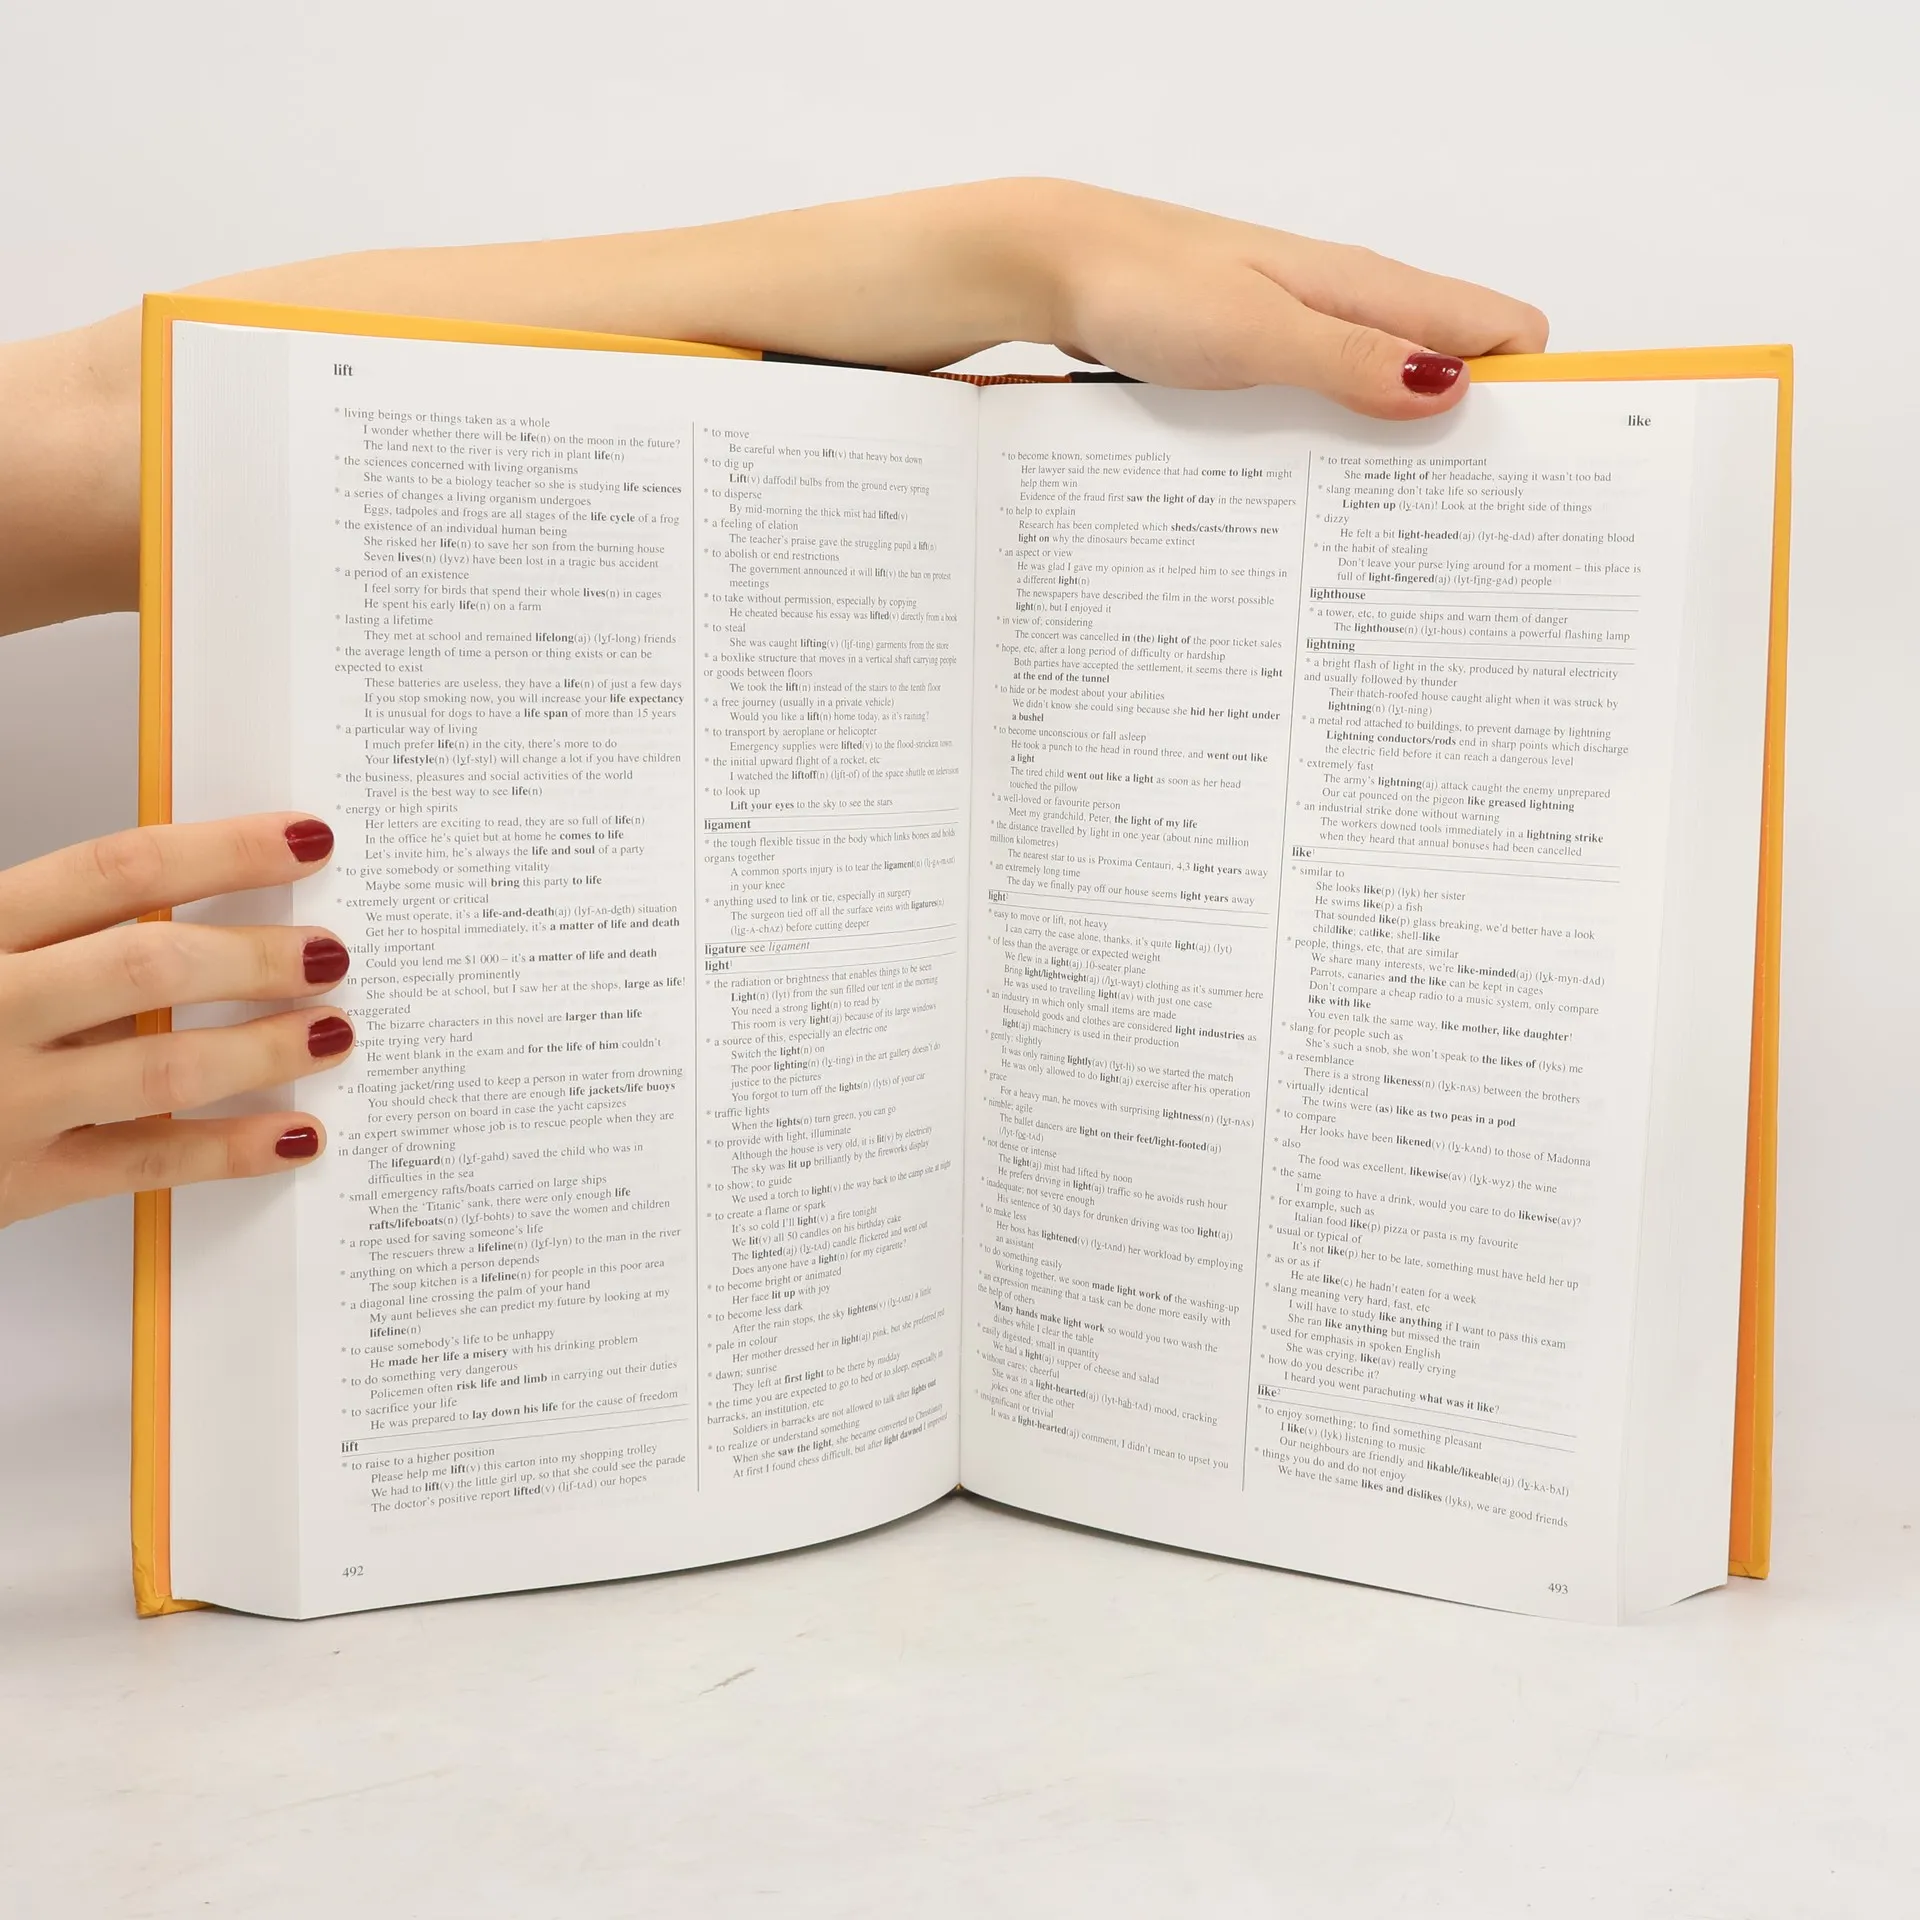 lift
* living beings or things taken as a whole
I wonder whether there will be life(n) on the moon in the future?
The land next to the river is very rich in plant life(n)
* the sciences concerned with living organisms
She wants to be a biology teacher so she is studying life sciences
* a series of changes a living organism undergoes
Eggs, tadpoles and frogs are all stages of the life cycle of a frog
* the existence of an individual human being
She risked her life(n) to save her son from the burning house
Seven lives(n) (lyvz) have been lost in a tragic bus accident
* a period of an existence
I feel sorry for birds that spend their whole lives(n) in cages
He spent his early life(n) on a farm
* lasting a lifetime
They met at school and remained lifelong(aj) (lyf-long) friends
* the average length of time a person or thing exists or can be
expected to exist
These batteries are useless, they have a life(n) of just a few days
If you stop smoking now, you will increase your life expectancy
It is unusual for dogs to have a life span of more than 15 years
* a particular way of living
I much prefer life(n) in the city, there's more to do
Your lifestyle(n) (lyf-styl) will change a lot if you have children
* the business, pleasures and social activities of the world
Travel is the best way to see life(n)
* energy or high spirits
Her letters are exciting to read, they are so full of life(n)
In the office he's quiet but at home he comes to life
Let's invite him, he's always the life and soul of a party
* to give somebody or something vitality
Maybe some music will bring this party to life
* extremely urgent or critical
We must operate, it's a life-and-death(aj) (lyf-An-dgth) situation
Get her to hospital immediately, it's a matter of life and death
vitally important
Could you lend me $1 000 – it's a matter of life and death
in person, especially prominently
She should be at school, but I saw her at the shops, large as life!
exaggerated
The bizarre characters in this novel are larger than life
espite trying very hard
He went blank in the exam and for the life of him couldn't
remember anything
* a floating jacket/ring used to keep a person in water from drowning
You should check that there are enough life jackets/life buoys
for every person on board in case the yacht capsizes
* an expert swimmer whose job is to rescue people when they are
in danger of drowning
The lifeguard(n) (lyf-gahd) saved the child who was in
difficulties in the sea
* small emergency rafts/boats carried on large ships
When the 'Titanic' sank, there were only enough life
rafts/lifeboats(n) (lyf-bohts) to save the women and children
* a rope used for saving someone's life
The rescuers threw a lifeline(n) (lyf-lyn) to the man in the river
* anything on which a person depends
The soup kitchen is a lifeline(n) for people in this poor area
* a diagonal line crossing the palm of your hand
My aunt believes she can predict my future by looking at my
lifeline(n)
* to cause somebody's life to be unhappy
He made her life a misery with his drinking problem
* to do something very dangerous
Policemen often risk life and limb in carrying out their duties
* to sacrifice your life
He was prepared to lay down his life for the cause of freedom
lift
* to raise to a higher position
Please help me lift(v) this carton into my shopping trolley
We had to lift(v) the little girl up, so that she could see the parade
The doctor's positive report lifted(v) (lif-tAd) our hopes
492
* to move
Be careful when you lift(v) that heavy box down
* to dig up
Lift(v) daffodil bulbs from the ground every spring
* to disperse
By mid-morning the thick mist had lifted(v)
* a feeling of elation
The teacher's praise gave the struggling pupil a lift(n)
* to abolish or end restrictions
The government announced it will lift(v) the ban on protest
meetings
* to take without permission, especially by copying
He cheated because his essay was lifted(v) directly from a book
* to steal
She was caught lifting(v) (lif-ting) garments from the store
* a boxlike structure that moves in a vertical shaft carrying people
or goods between floors
We took the lift(n) instead of the stairs to the tenth floor
* a free journey (usually in a private vehicle)
Would you like a lift(n) home today, as it's raining?
* to transport by aeroplane or helicopter
Emergency supplies were lifted(v) to the flood-stricken town
* the initial upward flight of a rocket, etc
I watched the liftoff(n) (lift-of) of the space shuttle on television
* to look up
Lift your eyes to the sky to see the stars
ligament
* the tough flexible tissue in the body which links bones and holds
organs together
A common sports injury is to tear the ligament(n)
in your knee
* anything used to link or tie, especially in surgery
The surgeon tied off all the surface veins with ligatures(n)
(lig-A-chAz) before cutting deeper
ligature see ligament
light¹
* the radiation or brightness that enables things to be seen
Light(n) (lyt) from the sun filled our tent in the morning
You need a strong light(n) to read by
This room is very light(aj) because of its large windows
* a source of this, especially an electric one
Switch the light(n) on
The poor lighting(n) (ly-ting) in the art gallery doesn't do
justice to the pictures
You forgot to turn off the lights(n) (lyts) of your car
* traffic lights
When the lights(n) turn green, you can go
* to provide with light, illuminate
Although the house is very old, it is lit(v) by electricity
The sky was lit up brilliantly by the fireworks display
* to show; to guide
We used a torch to light(v) the way back to the camp site at night
* to create a flame or spark
It's so cold I'll light(v) a fire tonight
We lit(v) all 50 candles on his birthday cake
The lighted(aj) (ly-tAd) candle flickered and went out
Does anyone have a light(n) for my cigarette?
* to become bright or animated
Her face lit up with joy
* to become less dark
After the rain stops, the sky lightens(v) (ly-tAnz) a little
* pale in colour
Her mother dressed her in light(aj) pink, but she preferred red
* dawn; sunrise
They left at first light to be there by midday
* the time you are expected to go to bed or to sleep, especially in
barracks, an institution, etc
Soldiers in barracks are not allowed to talk after lights out
* to realize or understand something
When she saw the light, she became converted to Christianity
At first I found chess difficult, but after light dawned I improved
like
* to become known, sometimes publicly
Her lawyer said the new evidence that had come to light might
help them win
Evidence of the fraud first saw the light of day in the newspapers
* to help to explain
Research has been completed which sheds/casts/throws new
light on why the dinosaurs became extinct
* an aspect or view
He was glad I gave my opinion as it helped him to see things in
a different light(n)
The newspapers have described the film in the worst possible
light(n), but I enjoyed it
* in view of, considering
The concert was cancelled in (the) light of the poor ticket sales
* hope, etc, after a long period of difficulty or hardship
Both parties have accepted the settlement, it seems there is light
at the end of the tunnel
* to hide or be modest about your abilities
We didn't know she could sing because she hid her light under
a bushel
* to become unconscious or fall asleep
He took a punch to the head in round three, and went out like
a light
The tired child went out like a light as soon as her head
touched the pillow
* a well-loved or favourite person
Meet my grandchild, Peter, the light of my life
* the distance travelled by light in one year (about nine million
million kilometres)
The nearest star to us is Proxima Centauri, 4,3 light years away
* an extremely long time
The day we finally pay off our house seems light years away
light²
* easy to move or lift, not heavy
I can carry the case alone, thanks, it's quite light(aj) (lyt)
* of less than the average or expected weight
We flew in a light(aj) 10-seater plane
Bring light/lightweight(aj) (/lyt-wayt) clothing as it's summer here
He was used to travelling light(av) with just one case
* an industry in which only small items are made
Household goods and clothes are considered light industries as
light(aj) machinery is used in their production
* gently; slightly
It was only raining lightly(av) (lyt-li) so we started the match
He was only allowed to do light(aj) exercise after his operation
* grace
For a heavy man, he moves with surprising lightness(n) (lyt-nAs)
* nimble; agile
The ballet dancers are light on their feet/light-footed(aj)
(/lyt-fog-tAd)
* not dense or intense
The light(aj) mist had lifted by noon
He prefers driving in light(aj) traffic so he avoids rush hour
* inadequate; not severe enough
His sentence of 30 days for drunken driving was too light(aj)
* to make less
Her boss has lightened(v) (ly-tAnd) her workload by employing
an assistant
* to do something easily
Working together, we soon made light work of the washing-up
* an expression meaning that a task can be done more easily with
the help of others
Many hands make light work so would you two wash the
dishes while I clear the table
* easily digested, small in quantity
We had a light(aj) supper of cheese and salad
* without cares; cheerful
She was in a light-hearted(aj) (lyt-hah-tAd) mood, cracking
jokes one after the other
* insignificant or trivial
It was a light-hearted(aj) comment, I didn't mean to upset you
* to treat something as unimportant
She made light of her headache, saying it wasn't too bad
* slang meaning don't take life so seriously
Lighten up (ly-tAn)! Look at the bright side of things
* dizzy
He felt a bit light-headed(aj) (lyt-he-dAd) after donating blood
* in the habit of stealing
Don't leave your purse lying around for a moment – this place is
full of light-fingered(aj) (lyt-fing-gAd) people
lighthouse
* a tower, etc, to guide ships and warn them of danger
The lighthouse(n) (lyt-hous) contains a powerful flashing lamp
lightning
* a bright flash of light in the sky, produced by natural electricity
and usually followed by thunder
Their thatch-roofed house caught alight when it was struck by
lightning(n) (lyt-ning)
* a metal rod attached to buildings, to prevent damage by lightning
Lightning conductors/rods end in sharp points which discharge
the electric field before it can reach a dangerous level
* extremely fast
The army's lightning(aj) attack caught the enemy unprepared
Our cat pounced on the pigeon like greased lightning
* an industrial strike done without warning
The workers downed tools immediately in a lightning strike
when they heard that annual bonuses had been cancelled
like¹
* similar to
She looks like(p) (lyk) her sister
He swims like(p) a fish
That sounded like(p) glass breaking, we'd better have a look
childlike; catlike; shell-like
* people, things, etc, that are similar
We share many interests, we're like-minded(aj) (lyk-myn-dAd)
Parrots, canaries and the like can be kept in cages
Don't compare a cheap radio to a music system, only compare
like with like
You even talk the same way, like mother, like daughter!
* slang for people such as
She's such a snob, she won't speak to the likes of (lyks) me
* a resemblance
There is a strong likeness(n) (lyk-nAs) between the brothers
* virtually identical
The twins were (as) like as two peas in a pod
* to compare
Her looks have been likened(v) (ly-kAnd) to those of Madonna
* also
The food was excellent, likewise(av) (lyk-wyz) the wine
* the same
I'm going to have a drink, would you care to do likewise(av)?
* for example, such as
Italian food like(p) pizza or pasta is my favourite
* usual or typical of
It's not like(p) her to be late, something must have held her up
* as or as if
He ate like(c) he hadn't eaten for a week
* slang meaning very hard, fast, etc
I will have to study like anything if I want to pass this exam
She ran like anything but missed the train
* used for emphasis in spoken English
She was crying, like(av) really crying
* how do you describe it?
I heard you went parachuting what was it like?
like²
* to enjoy something; to find something pleasant
I like(v) (lyk) listening to music
Our neighbours are friendly and likable/likeable(aj) (ly-kA-bAl)
* things you do and do not enjoy
We have the same likes and dislikes (lyks), we are good friends
493